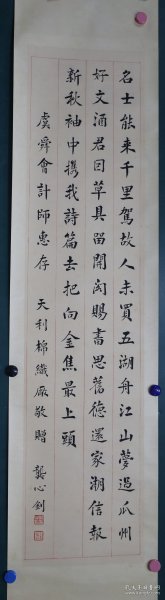 名士能來千里駕故人未買五湖舟江山夢過瓜州
好文酒君因草具留開函賜書思舊德還家潮信報
新秋袖中携我詩篇去把向金焦最上頭
虞舜會計師惠存 天利棉織廠敬贈 龔心釗